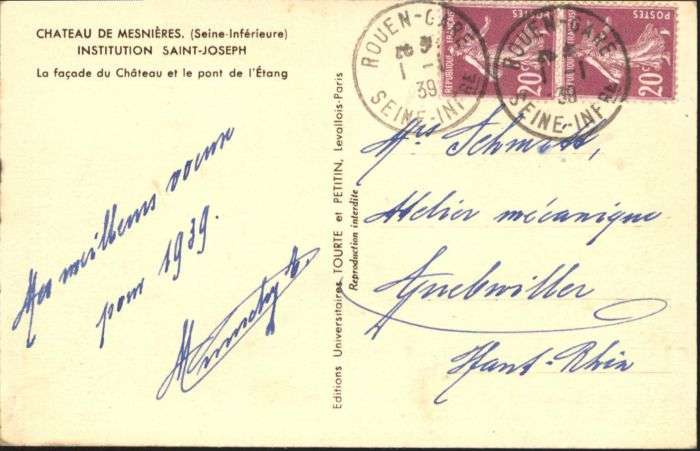 CHATEAU DE MESNIÈRES. (Seine-Inférieure)
INSTITUTION SAINT-JOSEPH
La façade du Château et le pont de l'Étang
Mes meilleurs voeux
pour 1939.
Editions Universitaires TOURTE et PETITIN, Levallois-Paris
Reproduction interdite
ROUEN-GARE
1-1
39
SEINE-INFRE
ROUEN-GARE
1
39
SEINE-INFRE
POSTES
20c
POSTES
20c
Mrs Schmitt,
Atelier mécanique
Guebwiller
Haut-Rhin